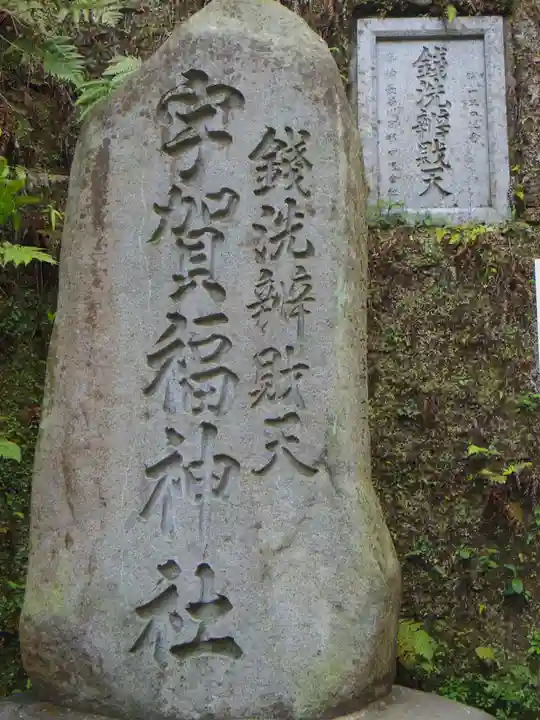 銭洗辨財天
宇賀福神社
銭洗辨戝天